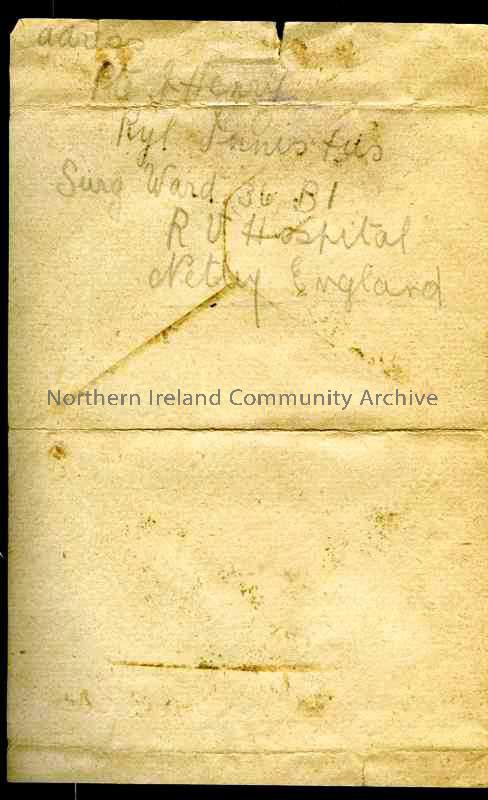 adress
Pte J Henry
Ryl Innis Fus
Surg Ward 36 B1
R V Hospital
Netley England
Northern Ireland Community Archive